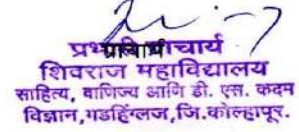 शिवराज महाविद्यालय
साहित्य, वाणिज्य आणि डी. एस. कदम
विज्ञान,गडहिंग्लज,जि.कोल्हापूर.